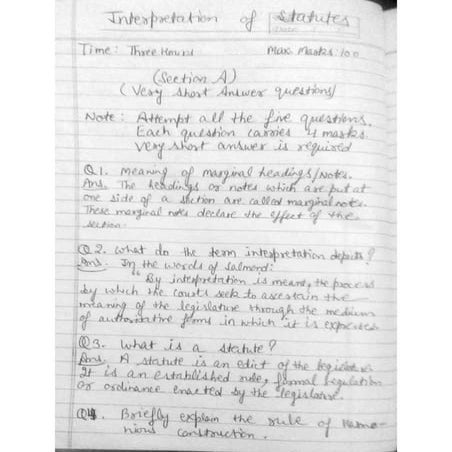 Interpretation of Statutes
Time: Three Hours Max. Marks: 100
(Section A)
(Very Short Answer questions)
Note: Attempt all the five questions.
Each question carries 4 marks.
Very short answer is required
Q1. Meaning of marginal headings/Notes.
Ans. The headings or notes which are put at
one side of a section are called marginal notes.
These marginal notes declare the effect of the
section.
Q2. What do the term interpretation depicts?
Ans. In the words of Salmond:
"By interpretation is meant, the process
by which the courts seek to ascertain the
meaning of the legislative through the medium
of authoritative forms in which it is expressed
Q3. What is a statute?
Ans. A statute is an edict of the legislature
It is an established rule, formal regulation
or ordinance enacted by the legislature.
Q4. Briefly explain the rule of Harmo-
nious construction.